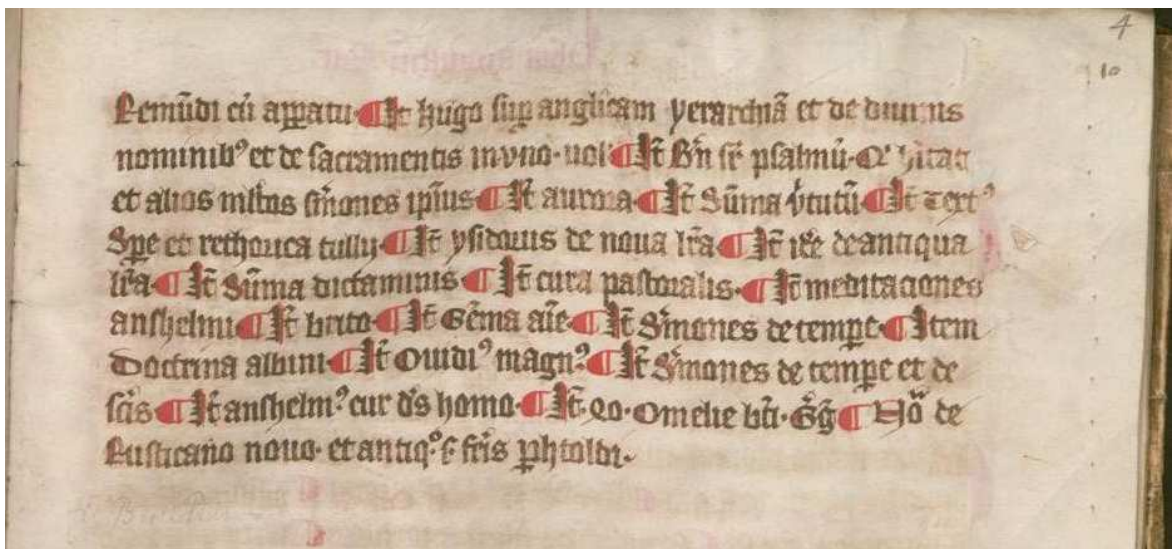 4
10
Remūdi cū appatu ¶ It̄ hugo sup anglicam yerarchiā et de diuinis
nominibꝰ et de sacramentis in vno uol ¶ It̄ Bn̄ sr̄ psalmū Qͥ hītat
et alios mltos s̄mones ip̄ius ¶ It̄ aurora ¶ It̄ Sūma v̄tutū ¶ It̄ Textꝰ
Spe et rethorica tullij ¶ It̄ ysidorus de noua lr̄a ¶ It̄ de antiqua
lr̄a ¶ It̄ Sūma dictaminis ¶ It̄ cura pastoralis ¶ It̄ meditaciones
anshelmi ¶ It̄ brito ¶ It̄ Gēma aīe ¶ It̄ S̄mones de tempe ¶ Item
Doctrina albini ¶ It̄ Ouidiꝰ magnꝰ ¶ It̄ S̄mones de tempe et de
sc̄is ¶ It̄ anshelmꝰ cur ds̄ homo ¶ It̄ Omelie bt̄i Gḡ ¶ de
Rusticano nouo et antiqͦ fr̄is